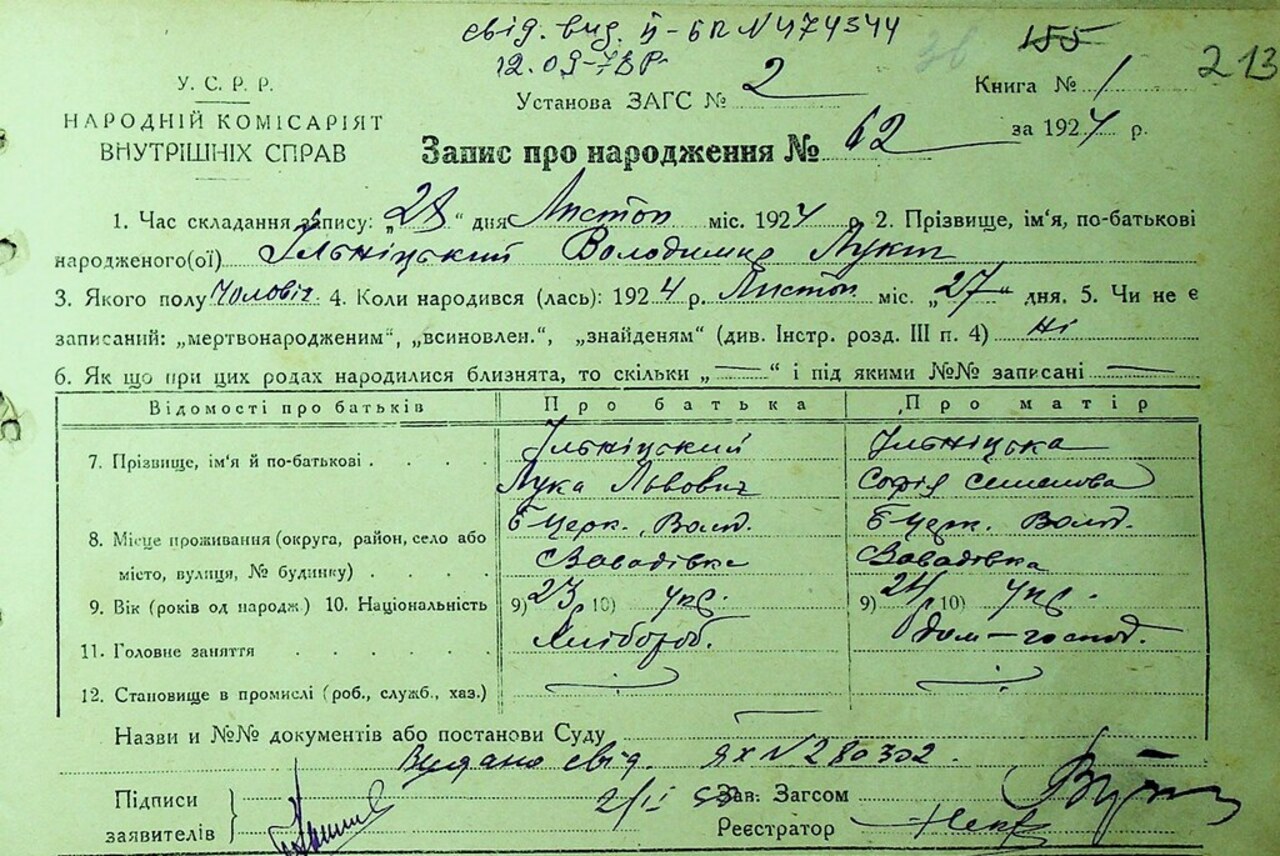 свід. вид. ІІ-БП N 474344
155 213
12.09-73р.
У. С. Р. Р.
НАРОДНІЙ КОМІСАРІЯТ
ВНУТРІШНІХ СПРАВ
Установа ЗАГС № 2
Книга № 1
Запис про народження № 62 за 1924 р.
1. Час складання запису: „28“ дня Листоп міс. 1924 р. 2. Прізвище, ім‘я, по-батькові
народженого(ої) Ільніцький Володимир Лукич
3. Якого полу Чоловіч. 4. Коли народився (лась): 1924 р. Листоп міс. „27“ дня. 5. Чи не є
записаний: „мертвонародженим“, „всиновлен.“, „знайденям“ (див. Інстр. розд. III п. 4) Ні
6. Як що при цих родах народилися близнята, то скільки „—“ і під якими №№ записані —
Відомості про батьків Про батька Про матір
7. Прізвище, ім‘я й по-батькові Ільніцький Ільніцька
Лука Львович Софія Семенова
8. Місце проживання (округа, район, село або Б Церк. Волод. Б Церк. Волод.
місто, вулиця, № будинку) Завадівка Завадівка
9. Вік (років од народж.) 10. Національність 9) 23 10) Укр. 9) 24 10) Укр.
11. Головне заняття Хлібороб. Дом-господ.
12. Становище в промислі (роб., служб., хаз.)
Назви и №№ документів або постанови Суду —
Видано свід. ЯХ N 280302.
Підписи
заявителів
2/ІІ 58
Зав. Загсом
Реєстратор